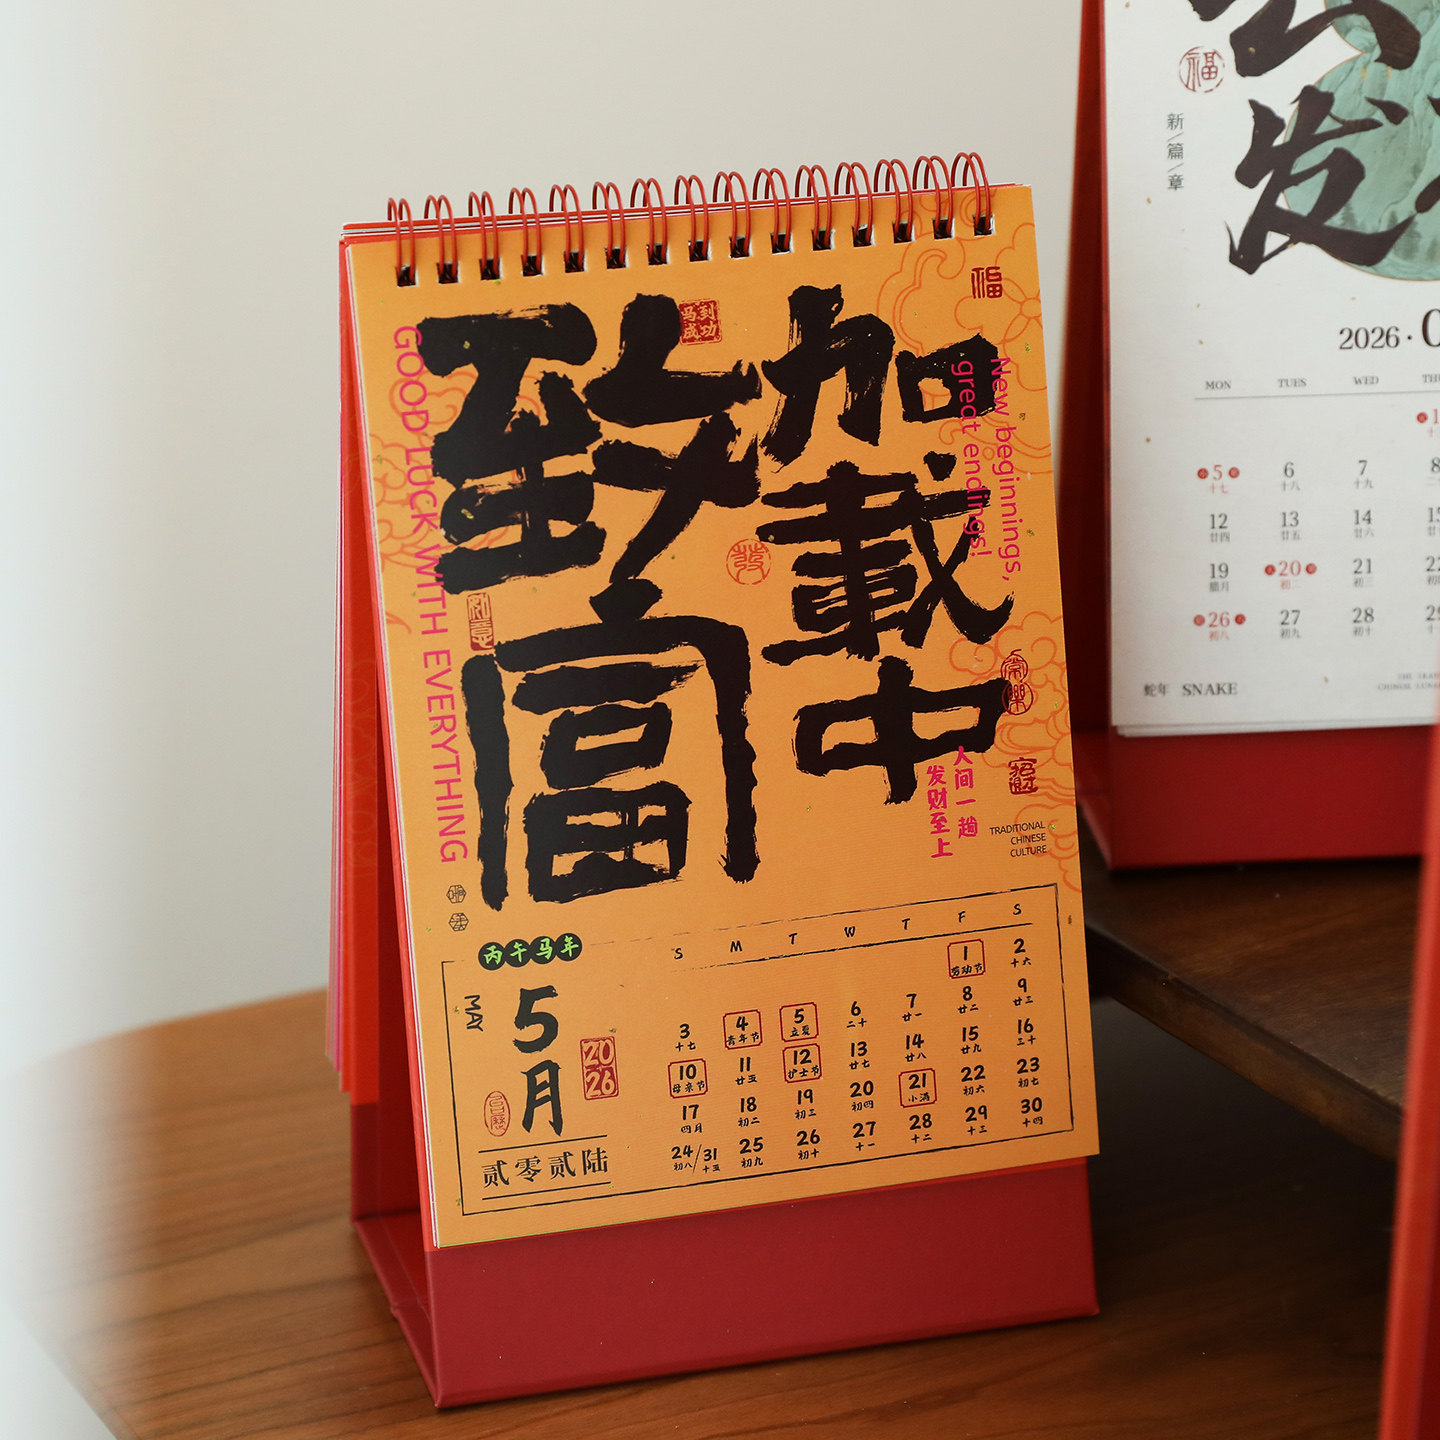 致富
加載中
马到
成功
福
發
如意
常樂
GOOD LUCK WITH EVERYTHING
New beginnings,
great endings!
人间一趟
发财至上
TRADITIONAL
CHINESE
CULTURE
丙午马年
MAY
5月
2026
贰零贰陆
S M T W T F S
1 2
劳动节 十六
3 4 5 6 7 8 9
十七 青年节 立夏 二十 廿一 廿二 廿三
10 11 12 13 14 15 16
母亲节 廿五 护士节 廿七 廿八 廿九 三十
17 18 19 20 21 22 23
四月 初二 初三 初四 小满 初六 初七
24/31 25 26 27 28 29 30
初八 十五 初九 初十 十一 十二 十三 十四
福
发
新\篇\章
2026·0
MON TUES WED THU
1
5 6 7 8
十七 十八 十九
12 13 14 15
廿四 廿五 廿六
19 20 21 22
腊月 初二 初三
26 27 28 29
初八 初九 初十
蛇年 SNAKE